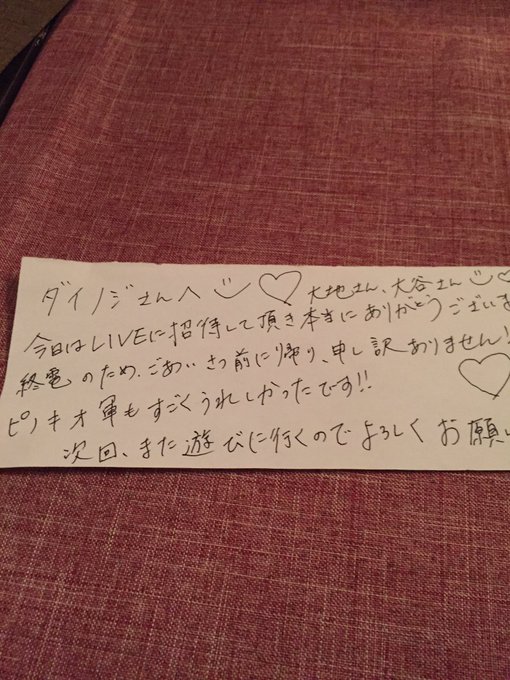 ダイノジさんへ 大地さん、大谷さん
今日はLIVEに招待して頂き本当にありがとうございま
終電のため、ごあいさつ前に帰り、申し訳ありません!
ピノキオ軍もすごくうれしかったです!!
次回、また遊びに行くのでよろしくお願い